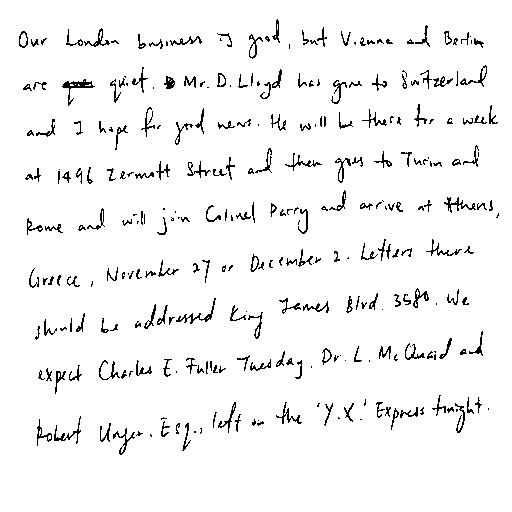 Our London business is good, but Vienna and Berlin
are quiet. Mr. D. Lloyd has gone to Switzerland
and I hope for good news. He will be there for a week
at 1496 Zermott Street and then goes to Turin and
Rome and will join Colonel Parry and arrive at Athens,
Greece, November 27 or December 2. Letters there
should be addressed King James Blvd. 3580. We
expect Charles E. Fuller Tuesday. Dr. L. McQuaid and
Robert Unger, Esq., left on the 'Y.X.' Express tonight.